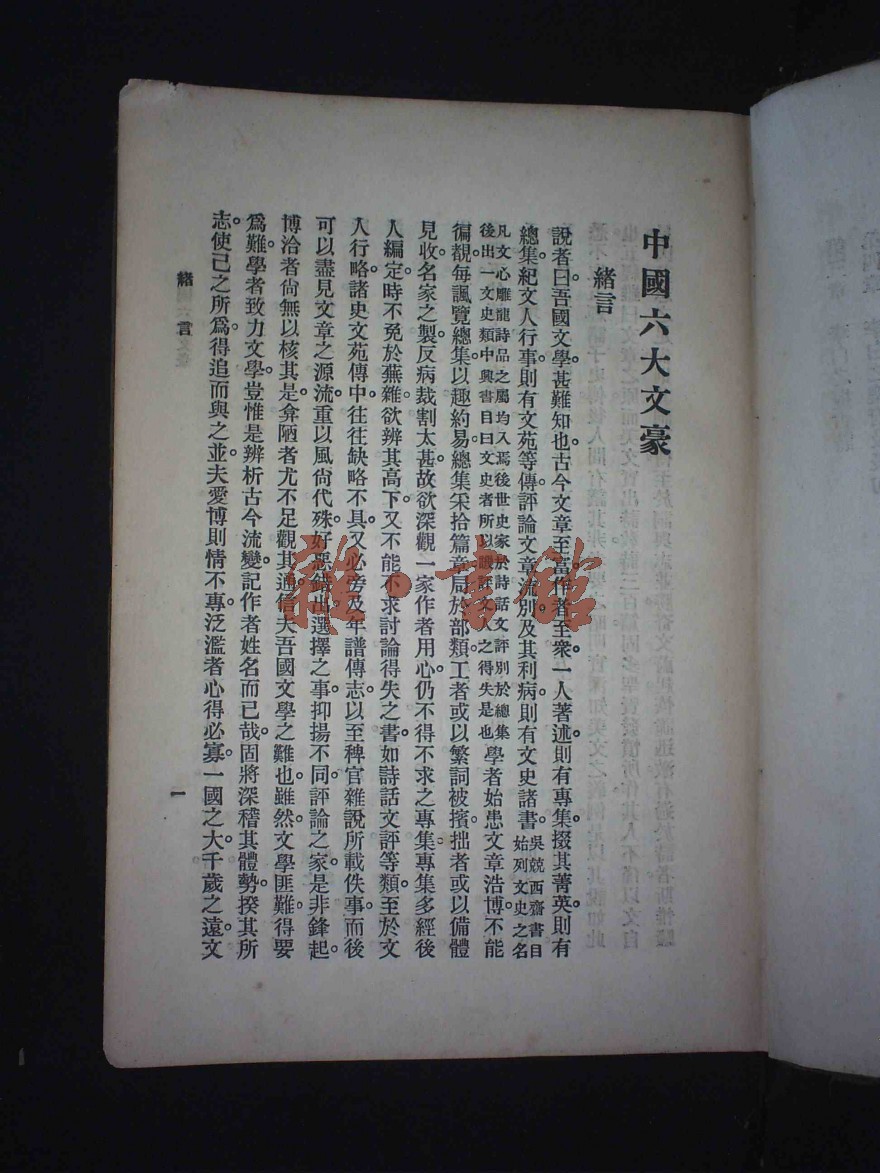 中國六大文豪
緒言
說者曰。吾國文學甚難知也。古今文章至富。作者至衆。一人著述。則有專集。掇其菁英。則有
總集。紀文人行事。則有文苑等傳。評論文章流別及其利病。則有文史諸書。吳兢西齋書目始列文史之名
凡文心雕龍詩品之屬均入焉後世史家於詩話文評別於總集後出一文史類中興書目曰文史者所以譏評文人之得失是也學者始患文章浩博。不能
徧覩。每諷覽總集。以趣約易。總集采拾篇章。局於部類。工者或以繁詞被擯。拙者或以備體
見收。名家之製。反病裁割太甚。故欲深觀一家作者用心。仍不得不求之專集。專集多經後
人編定。時不免於蕪雜。欲辨其高下。又不能不求討論得失之書。如詩話文評等類。至於文
人行略。諸史文苑傳中。往往缺略不具。又必旁及年譜傳志。以至稗官雜說所載佚事。而後
可以盡見文章之源流。重以風尙代殊。好惡錯出。選擇之事。抑揚不同。評論之家。是非鋒起。
博洽者尙無以核其是。弇陋者尤不足觀其通。信夫吾國文學之難也。雖然。文學匪難。得要
爲難。學者致力文學。豈惟是辨析古今流變。記作者姓名而已哉。固將深稽其體勢。揆其所
志。使己之所爲。得追而與之並。夫愛博則情不專。泛濫者心得必寡。一國之大。千歲之遠。文
緒言
一
雜·書館